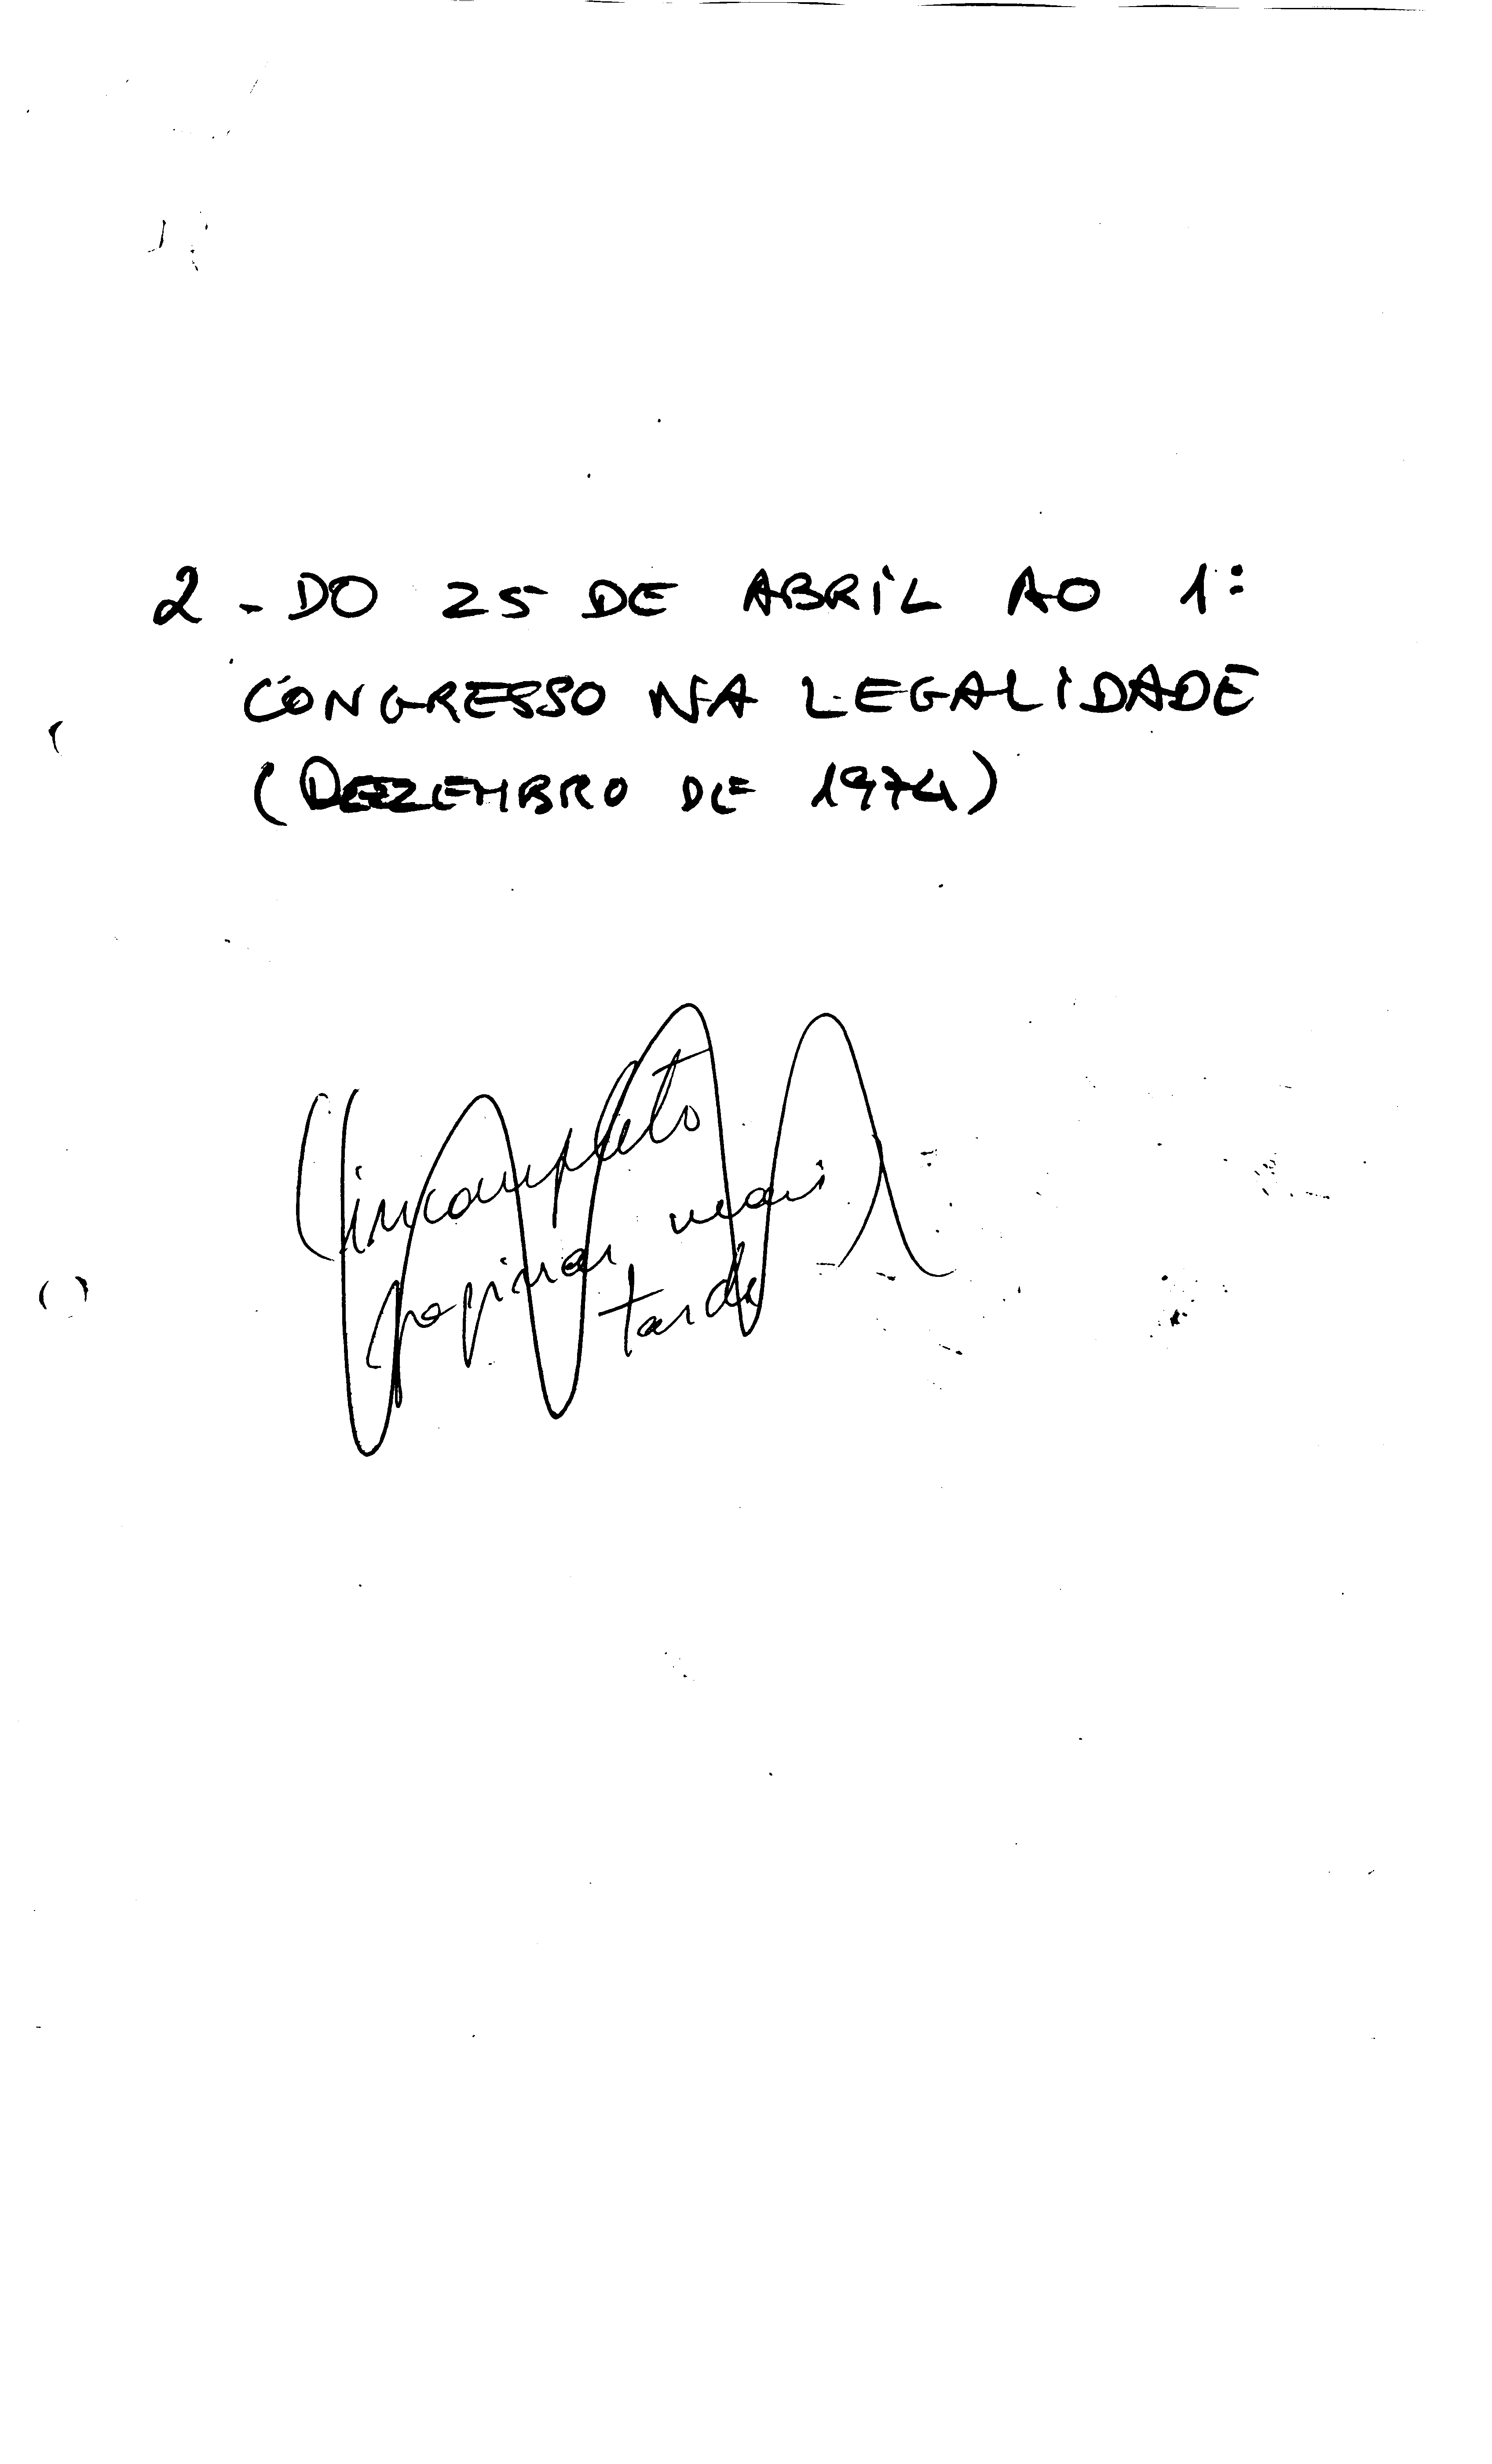 2 - DO 25 DE ABRIL AO 1º
CONGRESSO NA LEGALIDADE
(DEZEMBRO DE 1974)
(incompleto
paginar mais
tarde)